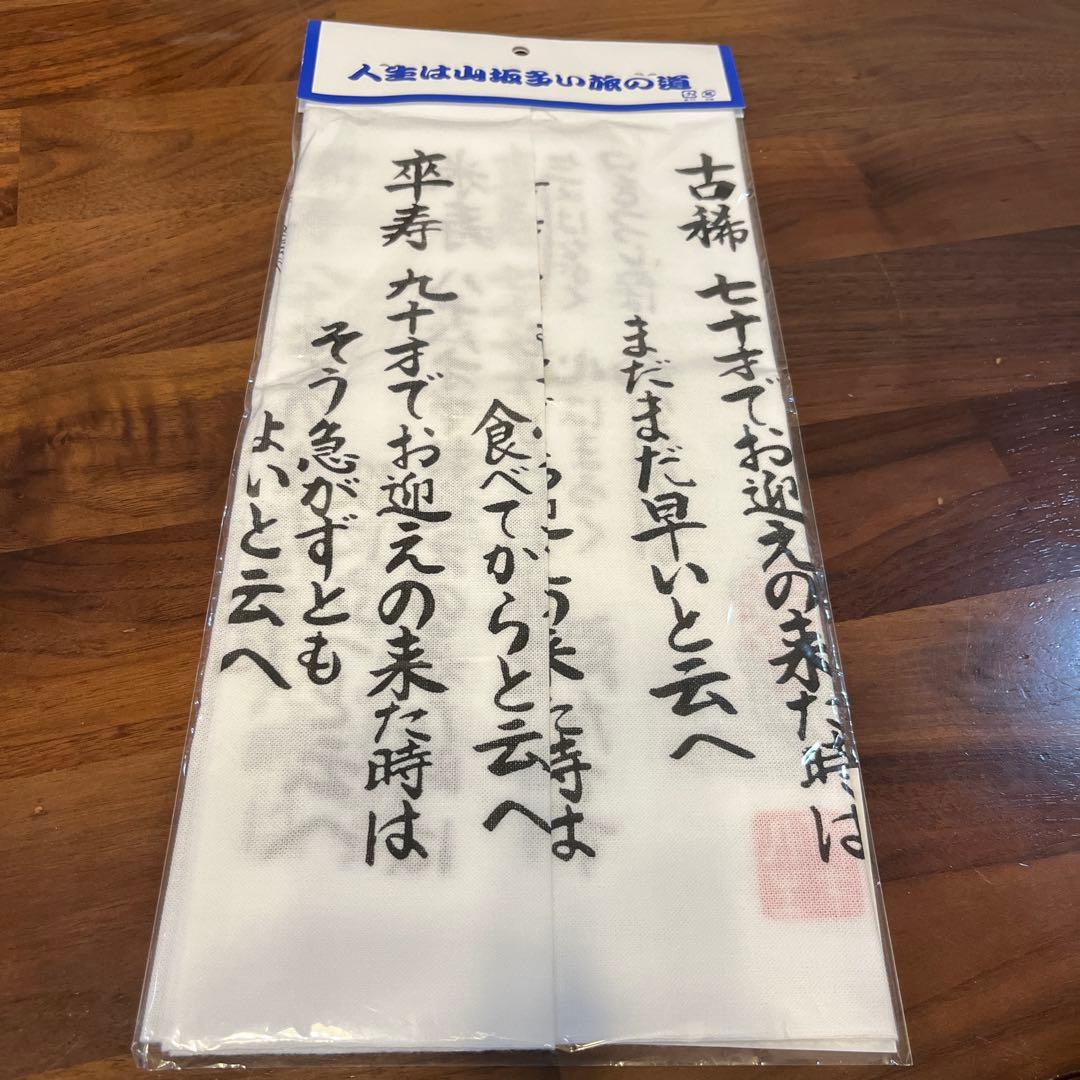 人生は山坂多い旅の道
古稀 七十才でお迎えの来た時は
まだまだ早いと云へ
食べてからと云へ
卒寿 九十才でお迎えの来た時は
そう急がずとも
よいと云へ